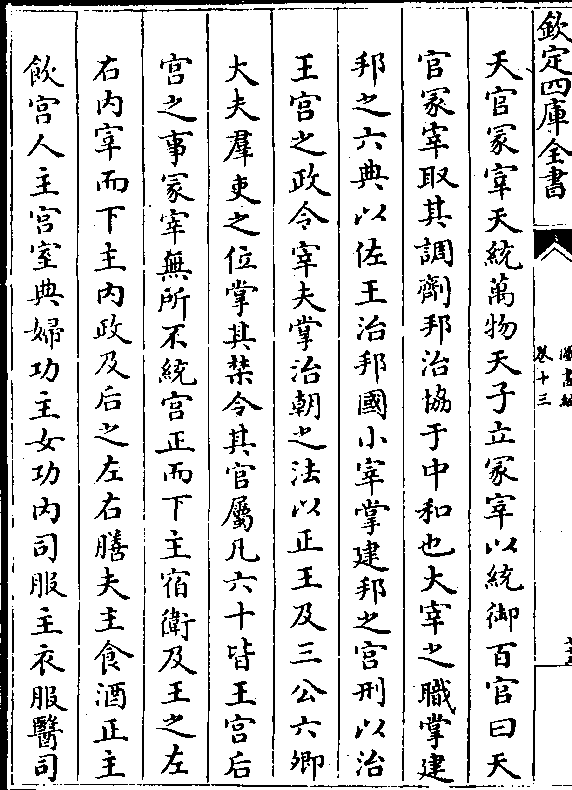 欽定四庫全書
卷十三
天官冢宰天統萬物天子立冢宰以統御百官曰天
官冢宰取其調劑邦治協于中和也大宰之職掌建
邦之六典以佐王治邦國小宰掌建邦之宮刑以治
王宮之政令宰夫掌治朝之法以正王及三公六卿
大夫羣吏之位掌其禁令其官屬凡六十皆王宮后
宮之事冢宰無所不統宮正而下主宿衛及王之左
右内宰而下主内政及后之左右膳夫主食酒正主
飲宮人主宮室典婦功主女功内司服主衣服醫司